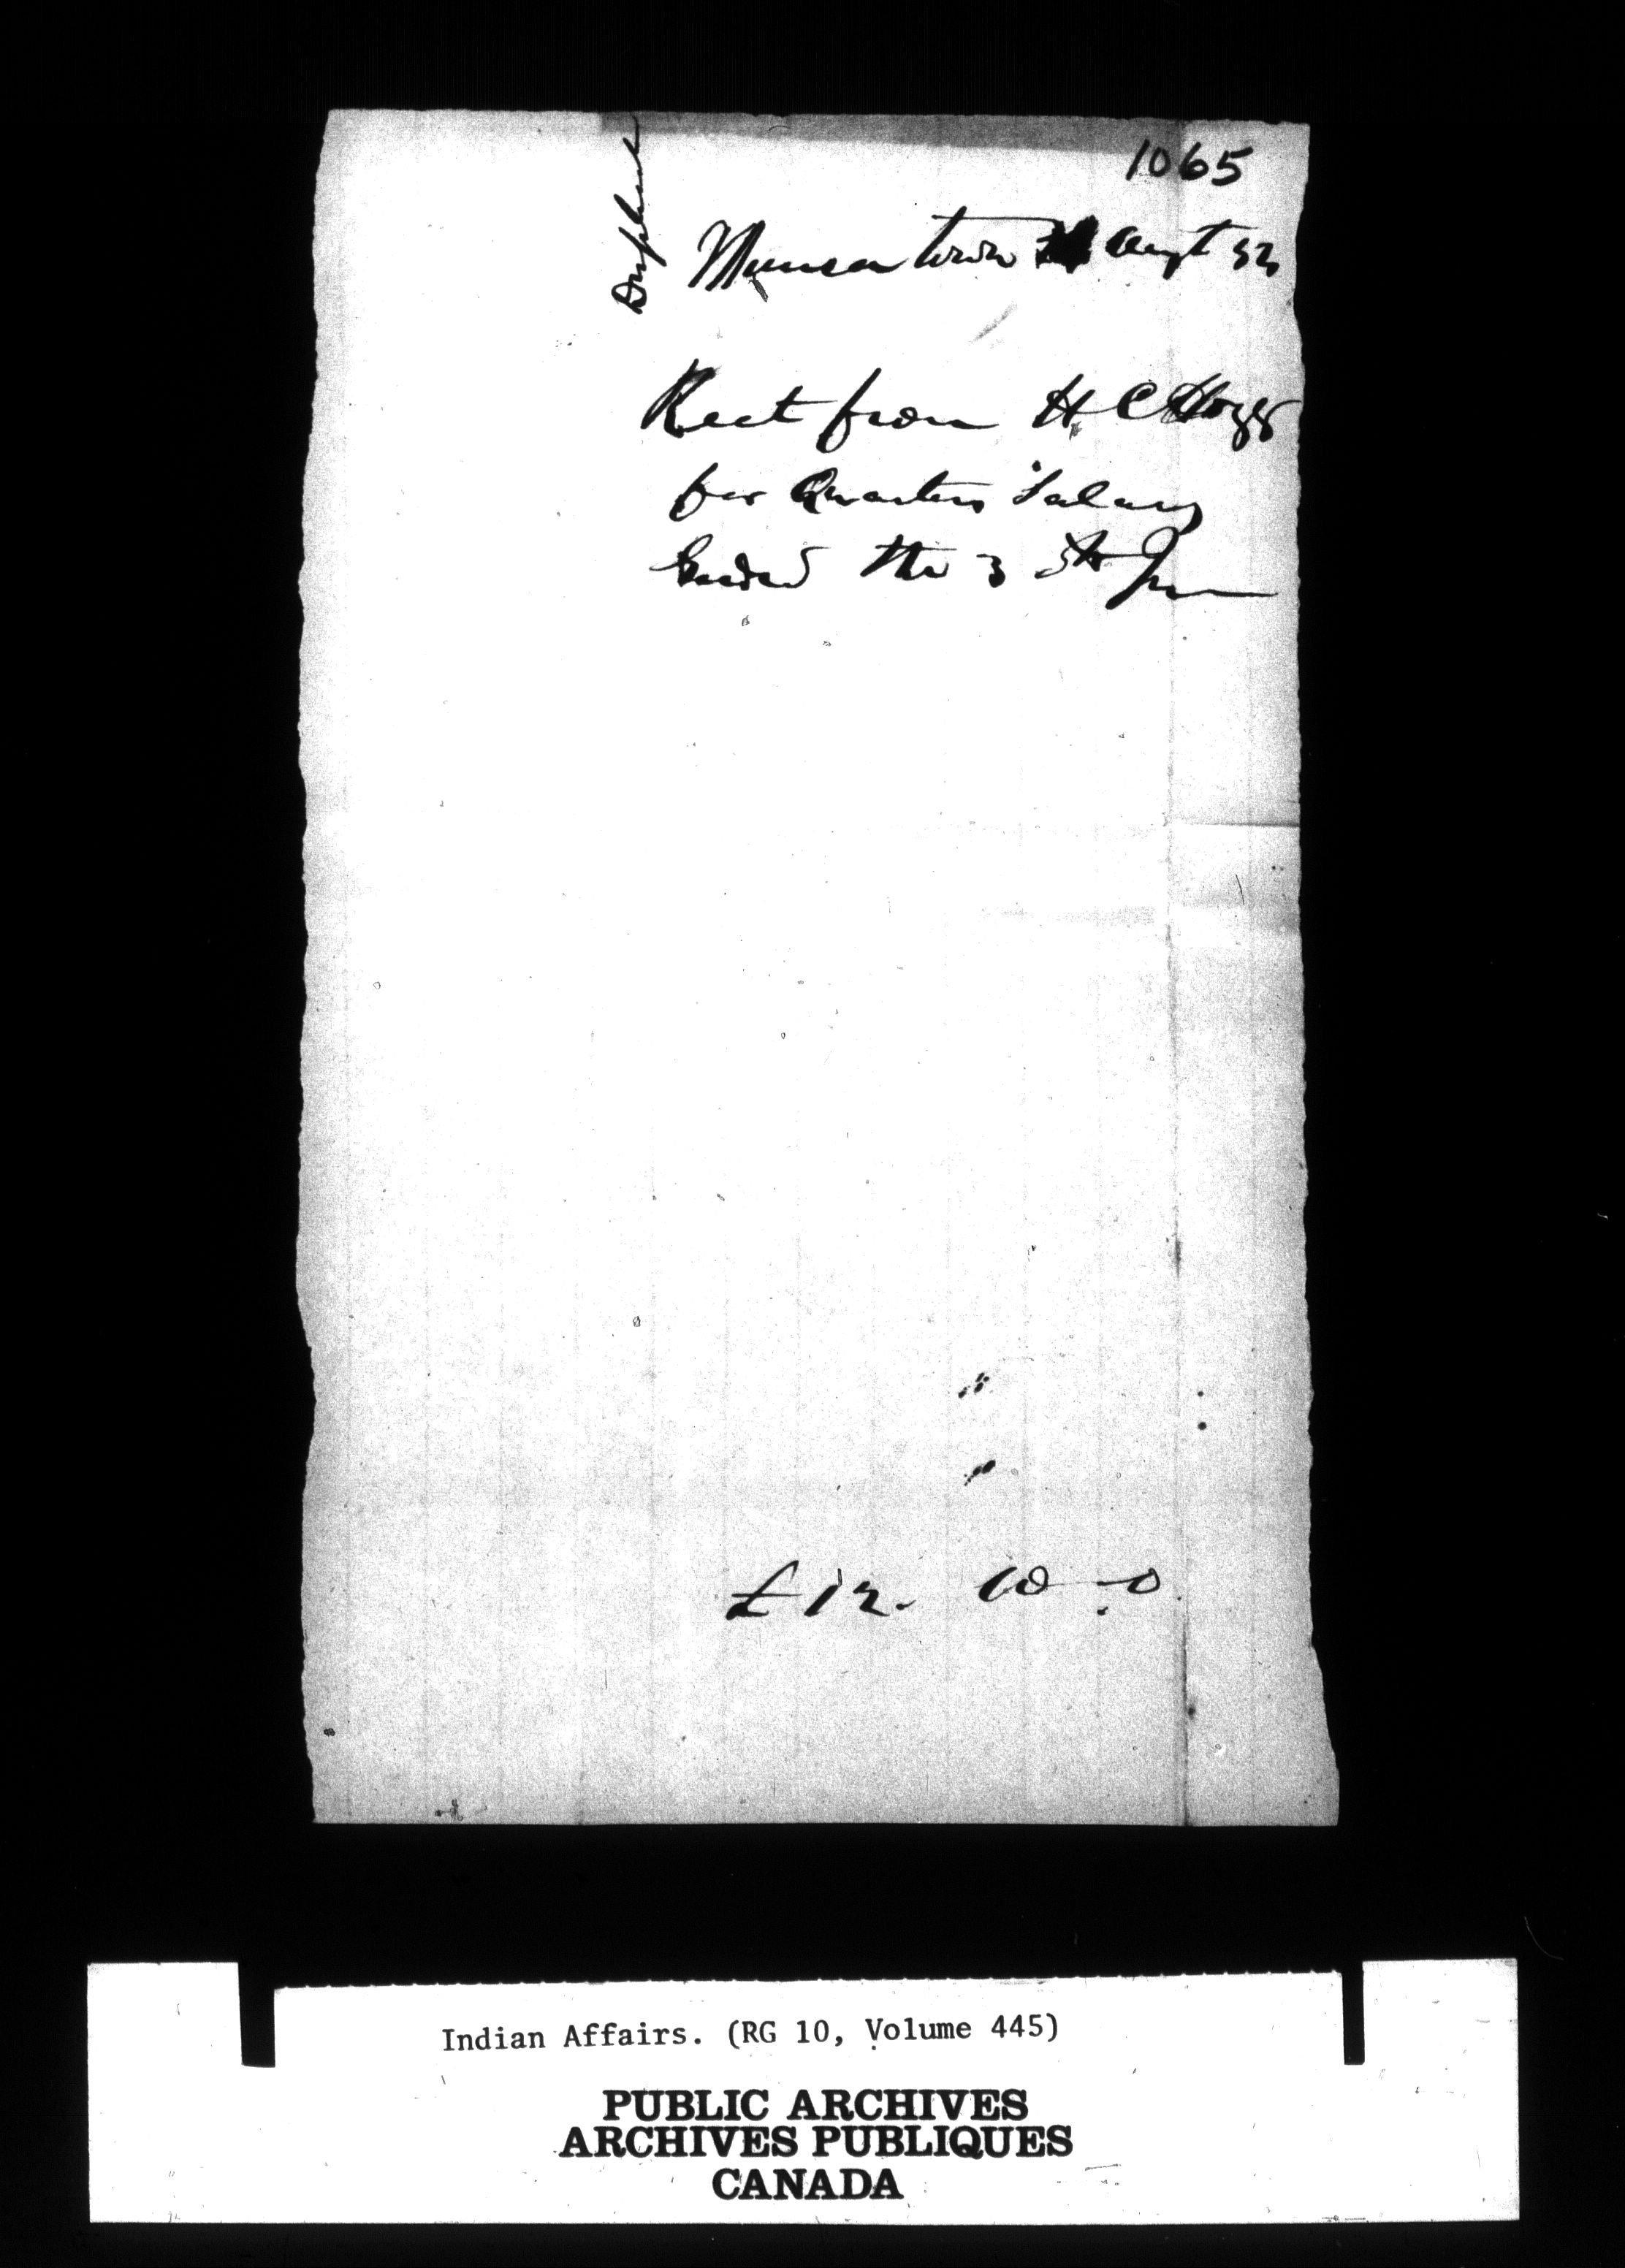 1065
Duplicate
Munsa town Augt 32
Rect from H. C Hogg
for Quarters Salary
Ended the 3 Jun
£12. 10 - 0
Indian Affairs. (RG 10, Volume 445)
PUBLIC ARCHIVES
ARCHIVES PUBLIQUES
CANADA